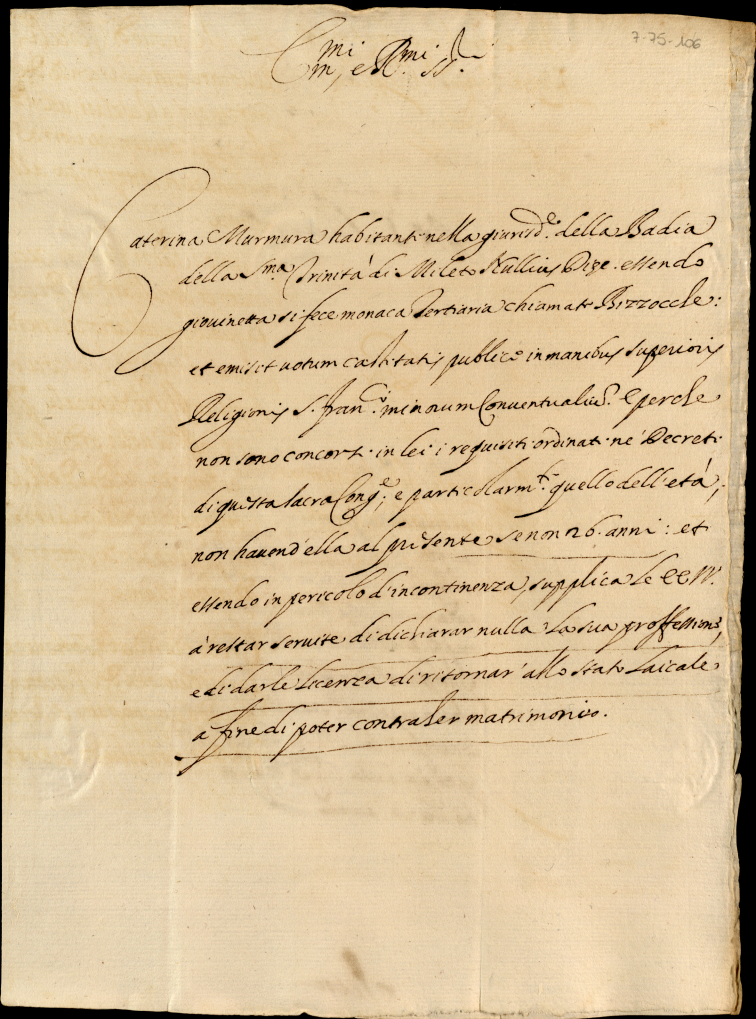 7-75-106
Em.mi e R.mi SS.
Caterina Murmura habitante nella giurisd.e della Badia
della S.ma Trinità di Mileto Nullius Dize. essendo
giovinetta si fece monaca Tertiaria chiamate Bizzoche:
et emisit votum castitatis publicè in manibus superioris
Religionis S. Fran.ci minorum Conventualiu. E perche
non sono concorsi in lei i requisiti ordinati ne' Decreti
di questa sacra Cong.e, e particolarm.te quello dell'età,
non havend'ella al presente se non 26. anni: et
essendo in pericolo d'incontinenza, supplica le EE VV.
à restar servite di dichiarar nulla la sua professione,
e di darle licenza di ritornar' allo stato laicale
a fine di poter contraher matrimonio.